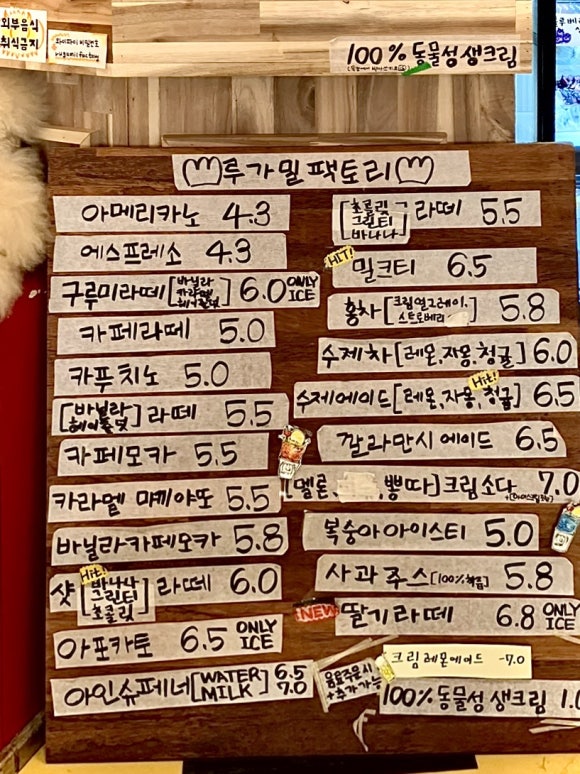 외부음식
취식금지
100% 동물성 생크림
루가밀팩토리
아메리카노 4.3
에스프레소 4.3
구루미라떼 [바닐라 카라멜 헤이즐넛] 6.0 ONLY ICE
카페라떼 5.0
카푸치노 5.0
[바닐라 헤이즐넛] 라떼 5.5
카페모카 5.5
카라멜 먀끼야또 5.5
바닐라카페모카 5.8
Hit!
샷 [바나나 그린티 초콜릿] 라떼 6.0
아포카토 6.5 ONLY ICE
아인슈페너 [WATER 6.5
MILK] 7.0
[초콜릿 그린티 바나나] 라떼 5.5
HIT!
밀크티 6.5
홍차 [크림얼그레이, 스트로베리] 5.8
수제차 [레몬, 자몽, 청귤] 6.0
Hit!
수제에이드 [레몬, 자몽, 청귤] 6.5
깔라만시 에이드 6.5
멜론, 뽕따] 크림소다 7.0
복숭아아이스티 5.0
사과주스 [100% 착즙] 5.8
NEW
딸기라떼 6.8 ONLY ICE
크림레몬에이드 -7.0
음료주문시
+추가가능
100% 동물성 생크림 1.0